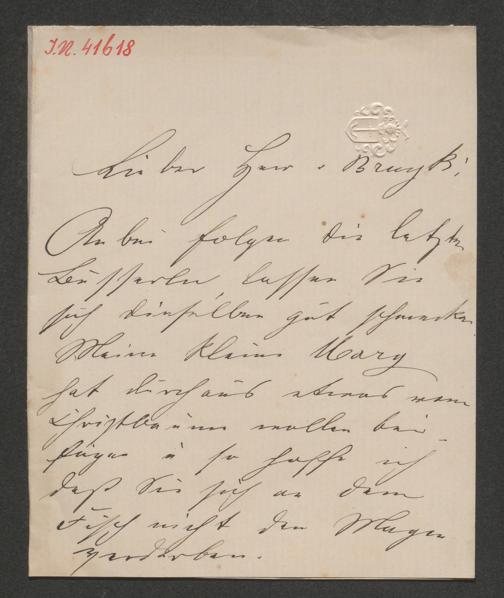 J.N. 41618
Lieber Herr v Bruyk!
Anbei folgen die letzten
Busserln lassen Sie
sich dieselben gut schmecken.
Meine kleine Mary
hat durchaus etwas vom
Christbaum wollen bei
fügen u so hoffe ich
daß Sie sich an dem
Fisch nicht den Magen
verderben.